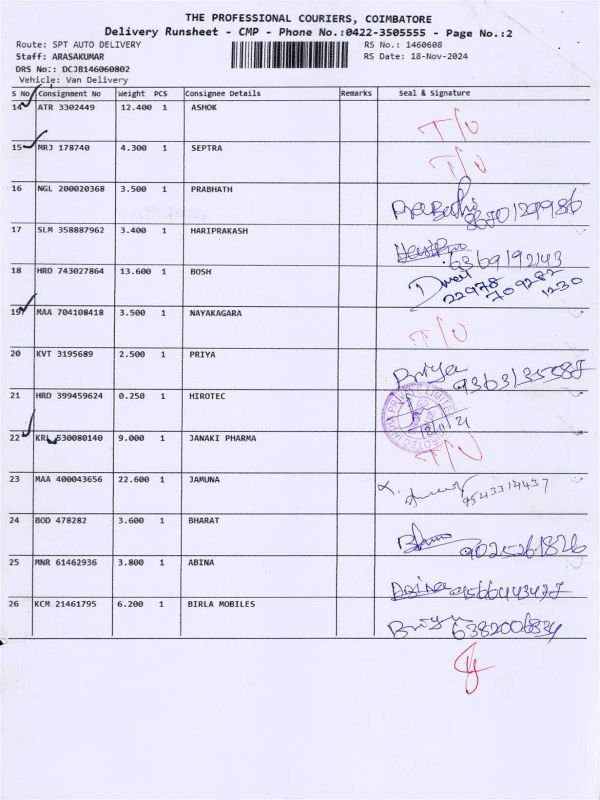 THE PROFESSIONAL COURIERS, COIMBATORE
Delivery Runsheet - CMP - Phone No.:0422-3505555 - Page No.:2
Route: SPT AUTO DELIVERY RS No.: 1460608
Staff: ARASAKUMAR RS Date: 18-Nov-2024
DRS No.: DCJB146060802
Vehicle: Van Delivery
S No Consignment No Weight PCS Consignee Details Remarks Seal & Signature
14 ATR 3302449 12.400 1 ASHOK T/O
15 MRJ 178740 4.300 1 SEPTRA T/O
16 NGL 200020368 3.500 1 PRABHATH
17 SLM 358887962 3.400 1 HARIPRAKASH 6369192143
18 HRD 743027864 13.600 1 BOSH
22978 709282
1230
19 MAA 704108418 3.500 1 NAYAKAGARA T/O
20 KVT 3195689 2.500 1 PRIYA Priya
21 HRD 399459624 0.250 1 HIROTEC
22 KRL 530080140 9.000 1 JANAKI PHARMA T/O
23 MAA 400043656 22.600 1 JAMUNA
24 BOD 478282 3.600 1 BHARAT 9025261826
25 MNR 61462936 3.800 1 ABINA Abina
26 KCM 21461795 6.200 1 BIRLA MOBILES Briya 6382006834